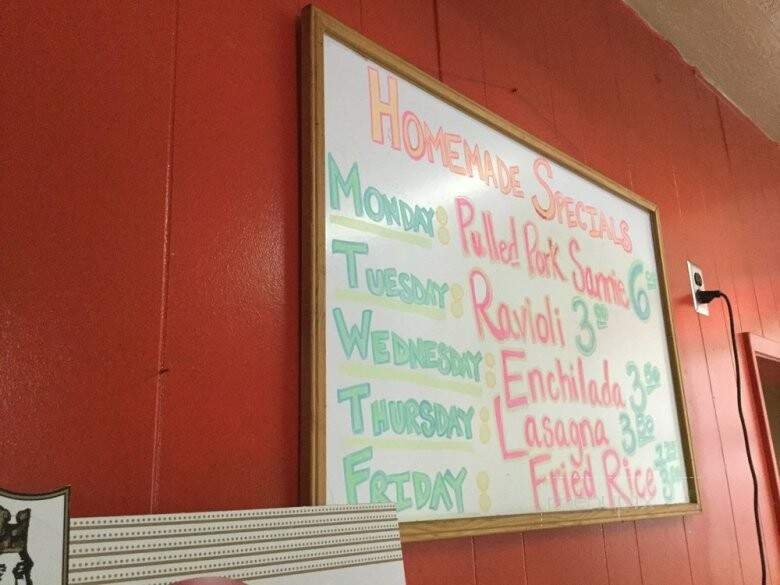 HOMEMADE SPECIALS
MONDAY: Pulled Pork Samie 6
TUESDAY: Ravioli 3
WEDNESDAY: Enchilada 3.50
THURSDAY: Lasagna 3.50
FRIDAY: Fried Rice